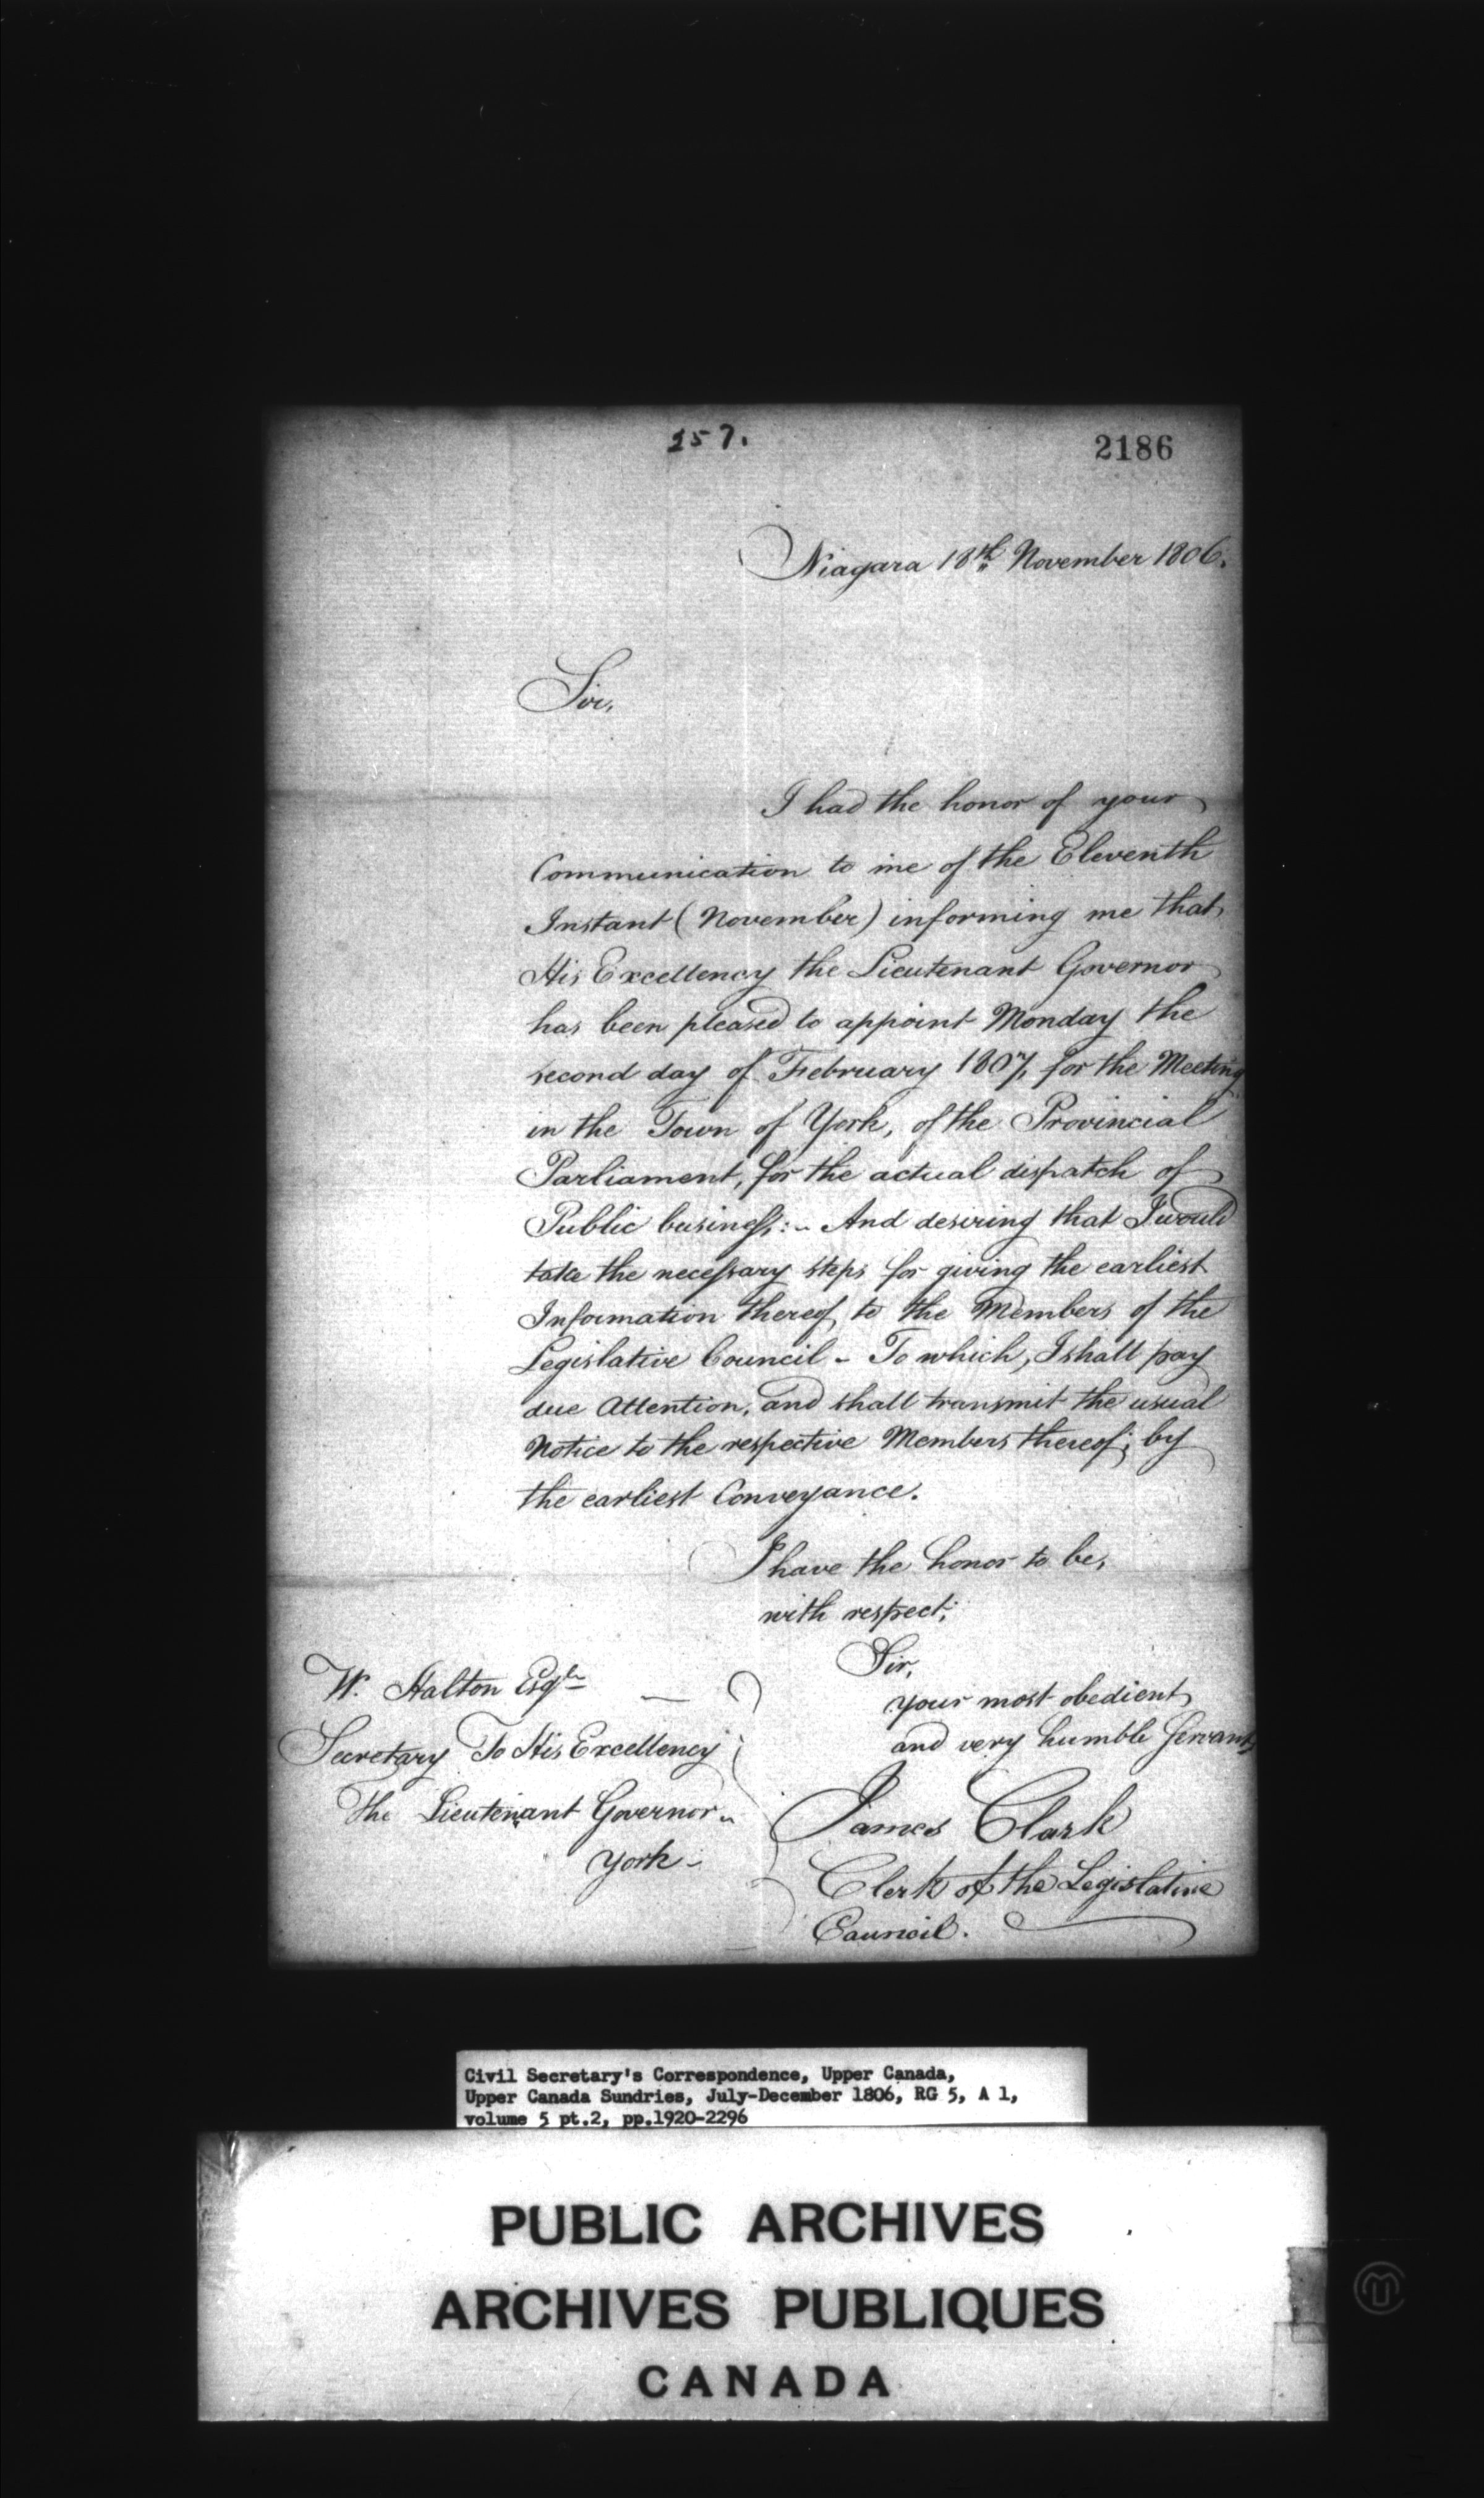 157.
2186
Niagara 18th November 1806.
Sir,
I had the honor of your
Communication to me of the Eleventh
Instant (November) informing me that
His Excellency the Lieutenant Governor
has been pleased to appoint Monday the
second day of February 1807, for the Meeting
in the Town of York, of the Provincial
Parliament, for the actual dispatch of
Public business:- And desiring that I would
take the necessary steps for giving the earliest
Information thereof to the Members of the
Legislative Council - To which, I shall pay
due Attention, and shall transmit the usual
Notice to the respective Members thereof; by
the earliest Conveyance.
I have the honor to be,
with respect;
Sir,
your most obedient
and very humble Servant,
James Clark
Clerk of the Legislative
Council.
W. Halton Esqr
Secretary To His Excellency
The Lieutenant Governor -
York -
Civil Secretary's Correspondence, Upper Canada,
Upper Canada Sundries, July-December 1806, RG 5, A 1,
volume 5 pt.2, pp.1920-2296
PUBLIC ARCHIVES
ARCHIVES PUBLIQUES
CANADA